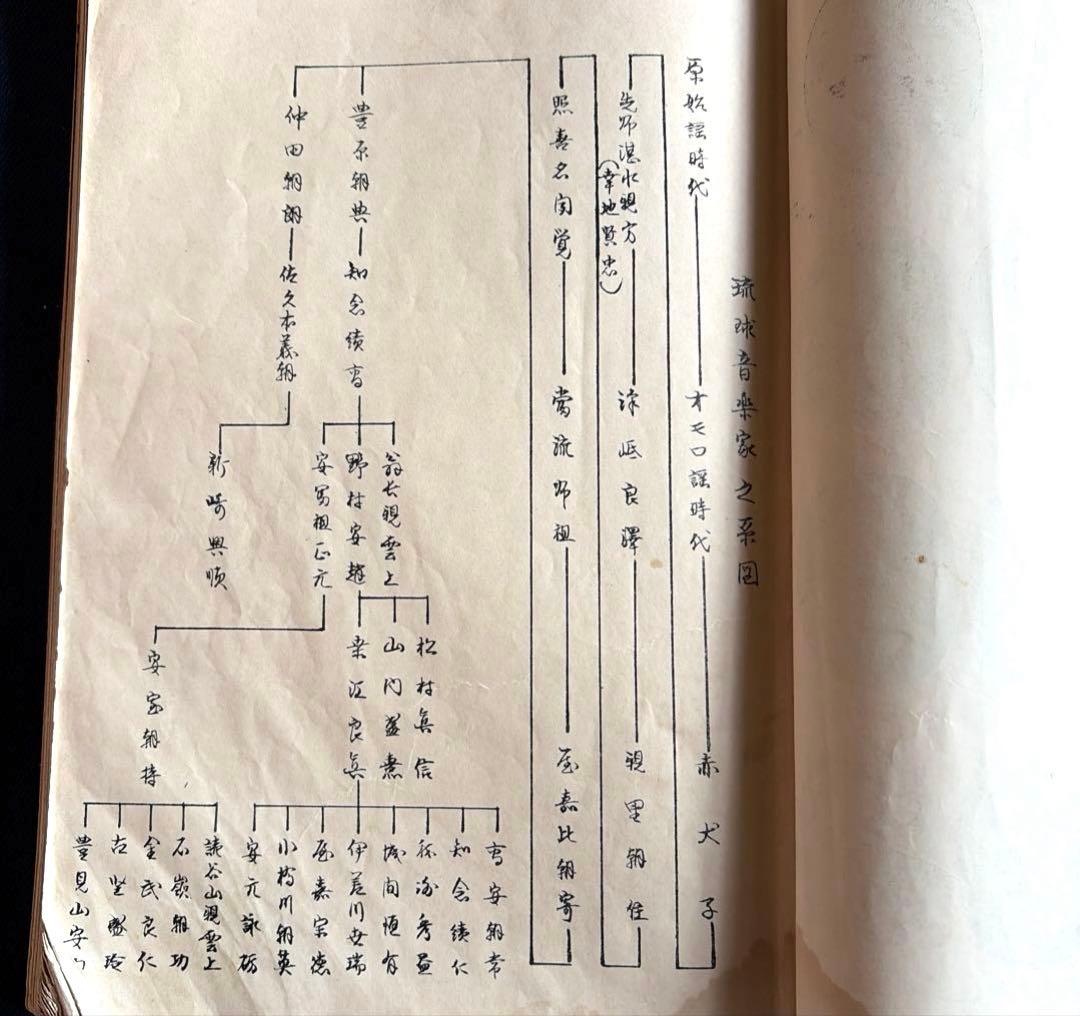 琉球音楽家之系図
原始謡時代
オモロ謡時代
赤犬子
先師湛水親方
(幸地賢忠)
澤岻良澤
親里朝住
照喜名聞覚
当流師祖
屋嘉比朝寄
豊原朝典
知念績高
仲田朝朗
佐久本義朝
翁長親雲上
野村安趙
安冨祖正元
新崎興順
松村真信
山内盛熹
桑江良真
安室朝持
高安朝常
知念績仁
城間恒有
伊差川世瑞
屋嘉宗徳
小橋川朝英
安元詠砺
読谷山親雲上
石嶺朝功
金武良仁
古堅盛珍
豊見山安